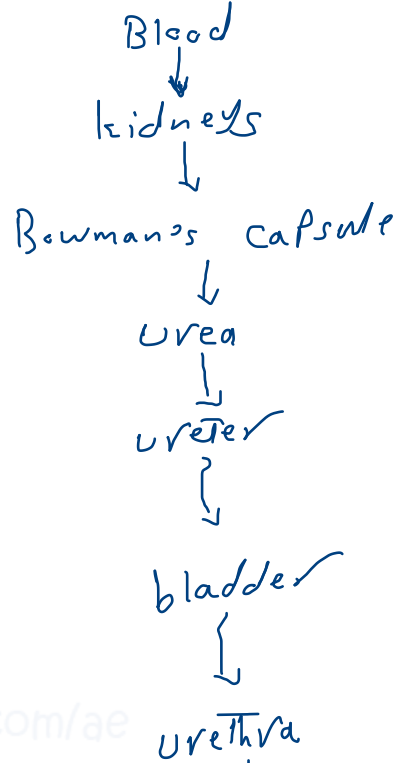 Blood
kidneys
Bowman's capsule
urea
ureter
bladder
com/ae
urethra